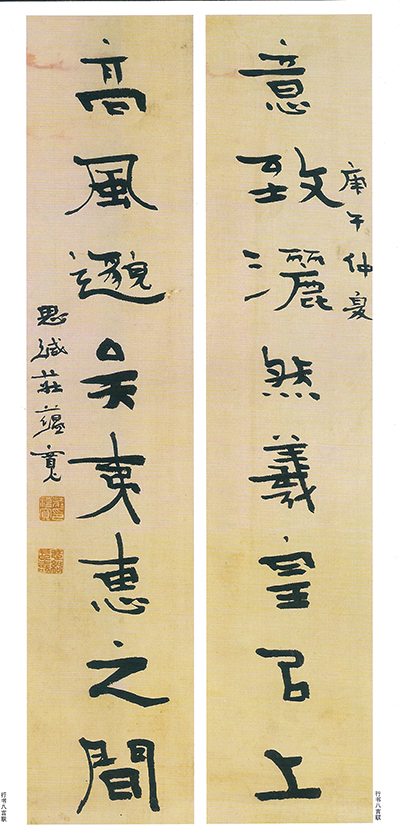 庚午仲夏
意致灑然羲皇以上
高風邈矣夷惠之間
思緘莊蘊寬
行书八言联
行书八言联